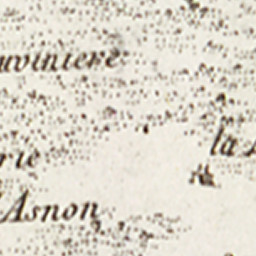 uviniere
la
rie
Asnon